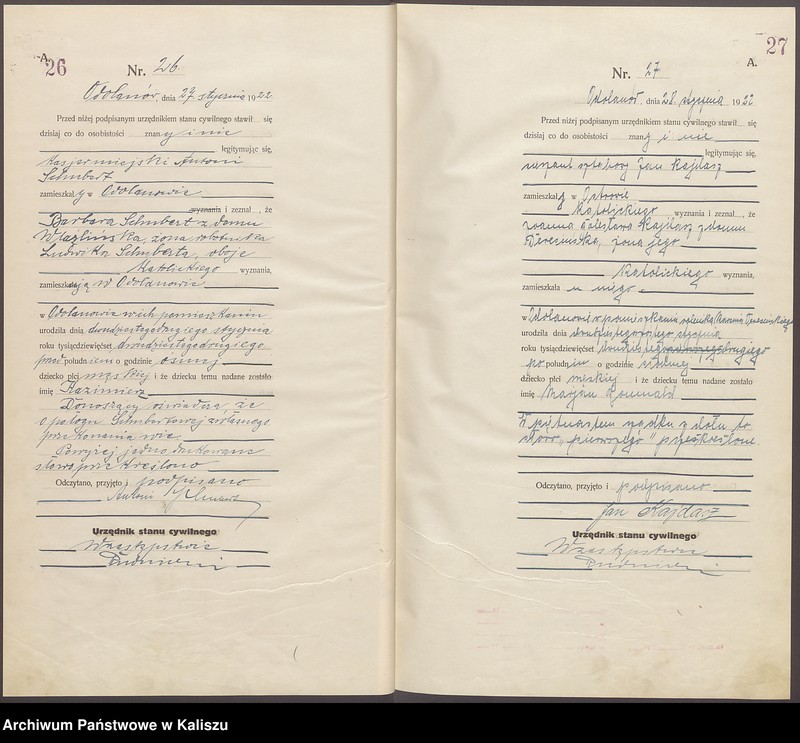 A.
26
Nr. 26.
Odolanów, dnia 27 stycznia 1922
Przed niżej podpisanym urzędnikiem stanu cywilnego stawił się
dzisiaj co do osobistości znany i nie
legitymując się,
kasjer miejski Antoni
Schubert
zamieszkały w Odolanowie
wyznania i zeznał, że
Barbara Schubert z domu
żona robotnika
Ludwika Schuberta, oboje
katolickiego wyznania,
zamieszkują w Odolanowie
w Odolanowie w ich pomieszkaniu
urodziła dnia dwudziestego drugiego stycznia
roku tysiącdziewięćset dwudziestego drugiego
przed południem o godzinie ósmej
dziecko płci męskiej i że dziecku temu nadane zostało
imię Kazimierz
Donoszący oświadcza że
o połogu Schubertowej z własnego
przekonania wie
Powyżej jedno drukowane
słowo przekreślono
Odczytano, przyjęto i podpisano
Antoni Schubert
Urzędnik stanu cywilnego
W zastępstwie
27
A.
Nr. 27
Odolanów, dnia 28. stycznia 1922
Przed niżej podpisanym urzędnikiem stanu cywilnego stawił się
dzisiaj co do osobistości znany i nie
legitymując się,
Jan Kajdasz
zamieszkały w Ostrowie
katolickiego wyznania i zeznał, że
Joanna Kajdasz z domu
żona jego
katolickiego wyznania,
zamieszkała u niego
w Odolanowie w pomieszkaniu
urodziła dnia stycznia
roku tysiącdziewięćset drugiego
po południu o godzinie
dziecko płci męskiej i że dziecku temu nadane zostało
imię Marjan Romuald
W piętnastym rządku z dołu to
słowo „pierwszego" przekreślono.
Odczytano, przyjęto i podpisano
Jan Kajdasz
Urzędnik stanu cywilnego
W zastępstwie
Archiwum Państwowe w Kaliszu